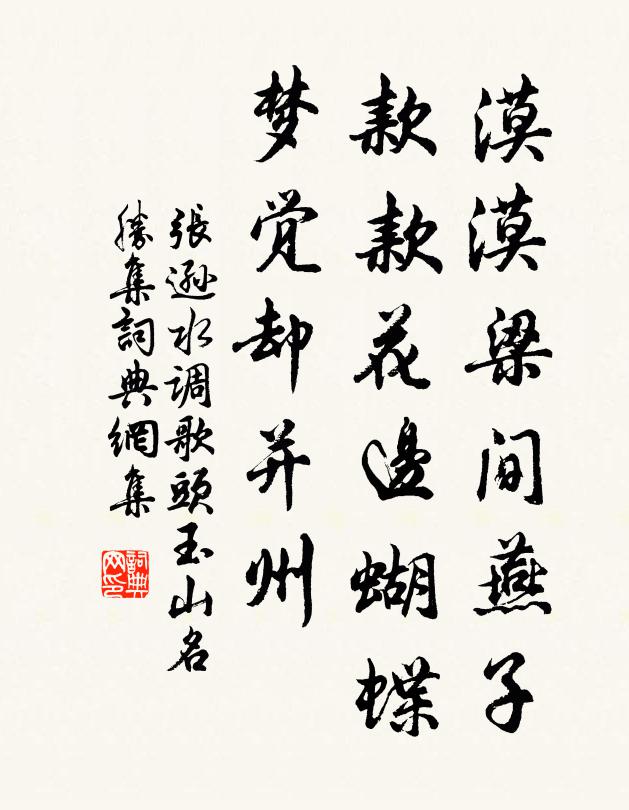 漠漠梁间燕子
款款花邊蝴蝶
梦觉却并州
張遜水调歌頭玉山名
勝集詞典網集
詞典网印